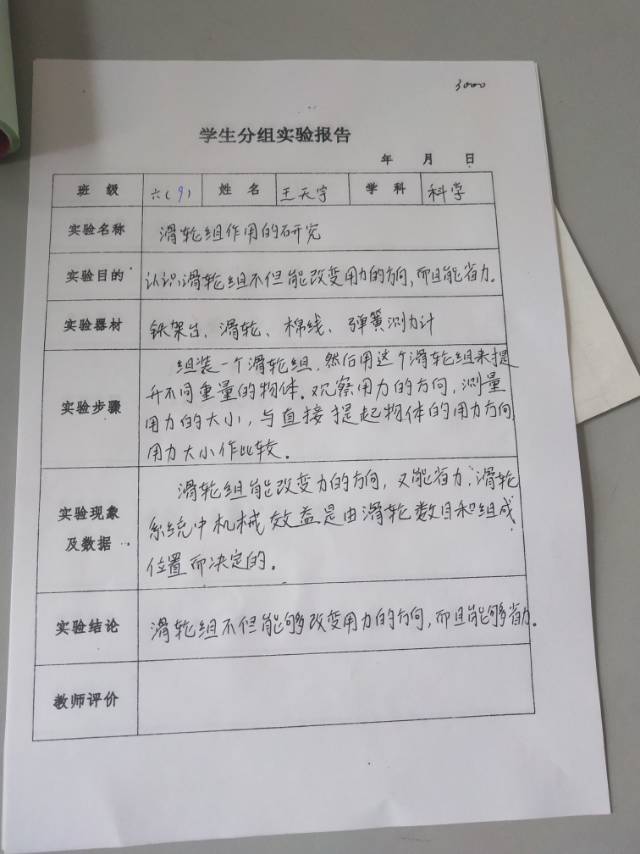 3000
学生分组实验报告
年 月 日
班 级 六(9) 姓 名 王天宇 学 科 科学
实验名称 滑轮组作用的研究
实验目的 认识滑轮组不但能改变用力的方向,而且能省力.
实验器材 铁架台、滑轮、棉线、弹簧测力计
实验步骤
组装一个滑轮组,然后用这个滑轮组来提
升不同重量的物体.观察用力的方向,测量
用力的大小,与直接提起物体的用力方向
用力大小作比较.
实验现象
及数据
滑轮组能改变力的方向,又能省力.滑轮
系统中机械效益是由滑轮数目和组成
位置而决定的.
实验结论 滑轮组不但能够改变用力的方向,而且能够省力.
教师评价